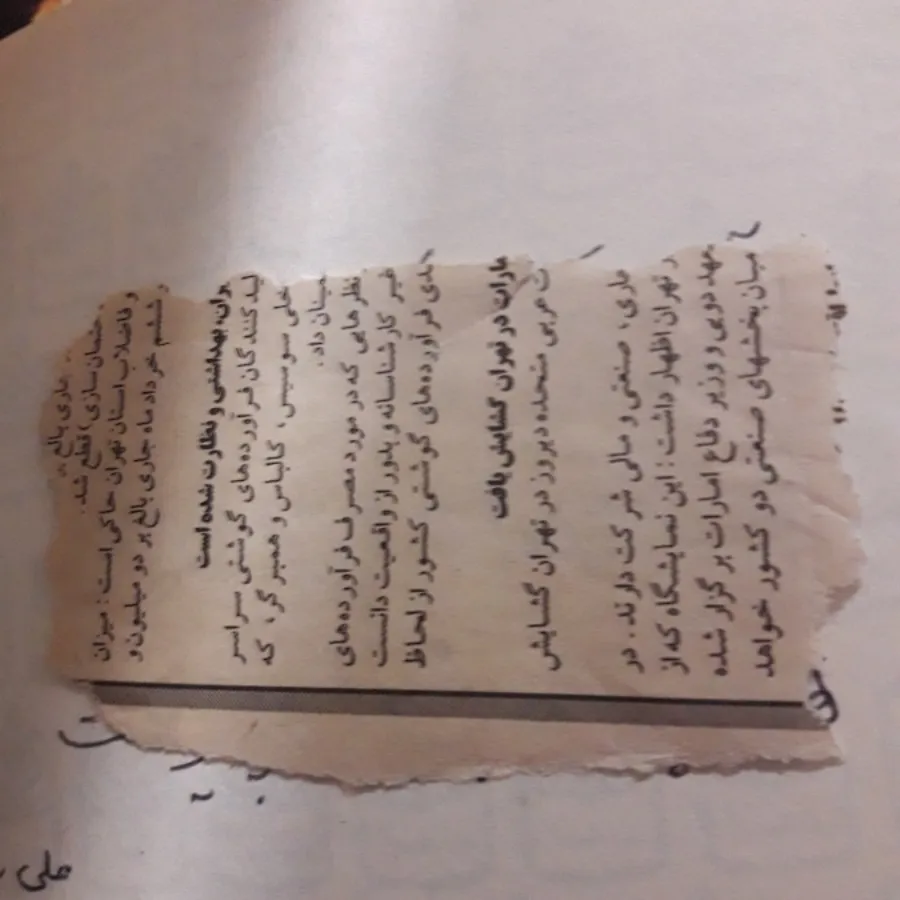 جاری بالغ
ختمان سازی) قطع شد.
و فاضلاب استان تهران حاکی است: میزان
و ششم خرداد ماه جاری بالغ بر دو میلیون و
یران، بهداشتی و نظارت شده است
لیدکنندگان فرآورده‌های گوشتی سراسر
خلی سوسیس، کالباس و همبرگر، که
مینان داد.
نظرهایی که در مورد مصرف فرآورده‌های
غیر کارشناسانه و بدور از واقعیت دانست
ندی فرآورده‌های گوشتی کشور از لحاظ
مارات در تهران گشایش یافت
ت عربی متحده دیروز در تهران گشایش
جاری، صنعتی و مالی شرکت دارند. در
ر تهران اظهار داشت: این نمایشگاه که از
مهد دوبی و وزیر دفاع امارات برگزار شده
میان بخشهای صنعتی دو کشور خواهد
علی